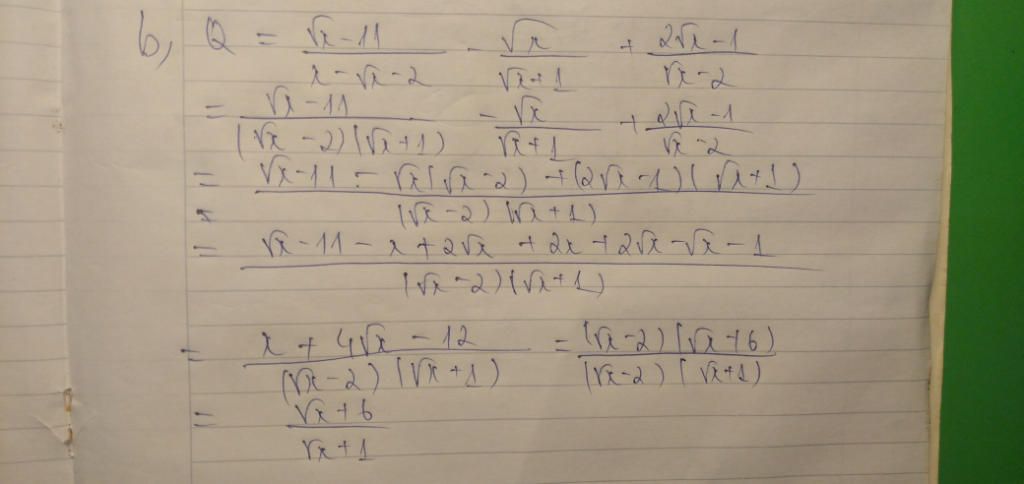 b, Q = (√x - 11)/(x - √x - 2) - √x/(√x + 1) + (2√x - 1)/(√x - 2)
= (√x - 11)/((√x - 2)(√x + 1)) - √x/(√x + 1) + (2√x - 1)/(√x - 2)
= (√x - 11 - √x(√x - 2) + (2√x - 1)(√x + 1))/((√x - 2)(√x + 1))
= (√x - 11 - x + 2√x + 2x + 2√x - √x - 1)/((√x - 2)(√x + 1))
= (x + 4√x - 12)/((√x - 2)(√x + 1)) = ((√x - 2)(√x + 6))/((√x - 2)(√x + 1))
= (√x + 6)/(√x + 1)